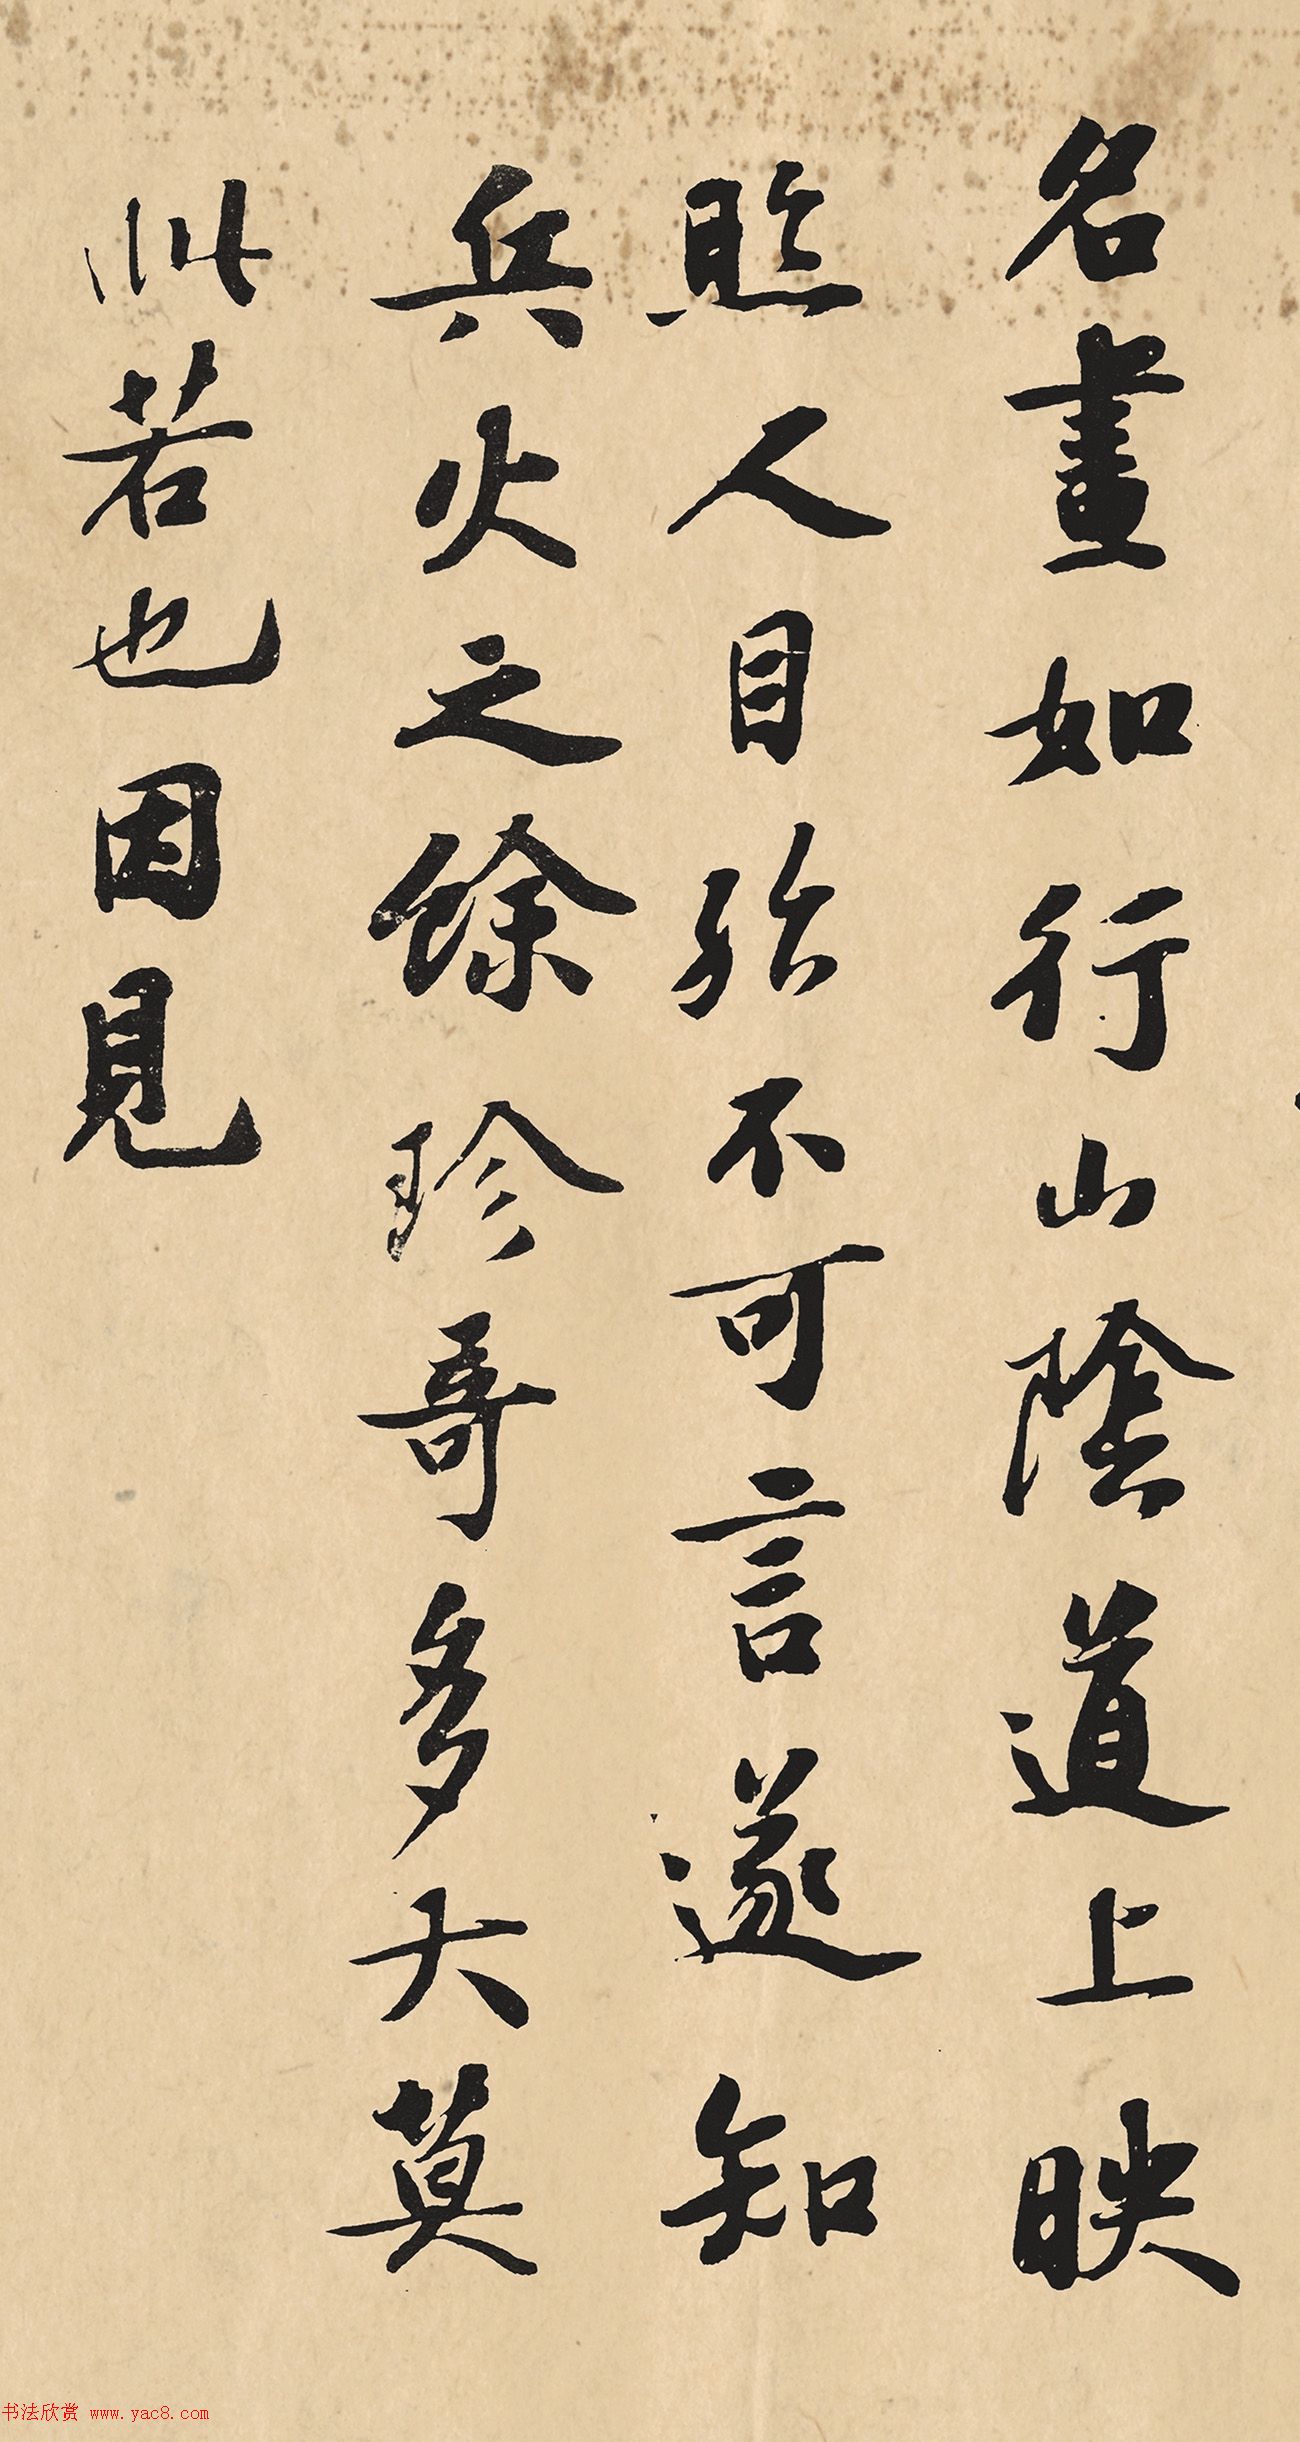 名畫如行山陰道上映
照人目殆不可言遂知
兵火之餘珍哥多大莫
此若也因見
书法欣赏 www.yac8.com